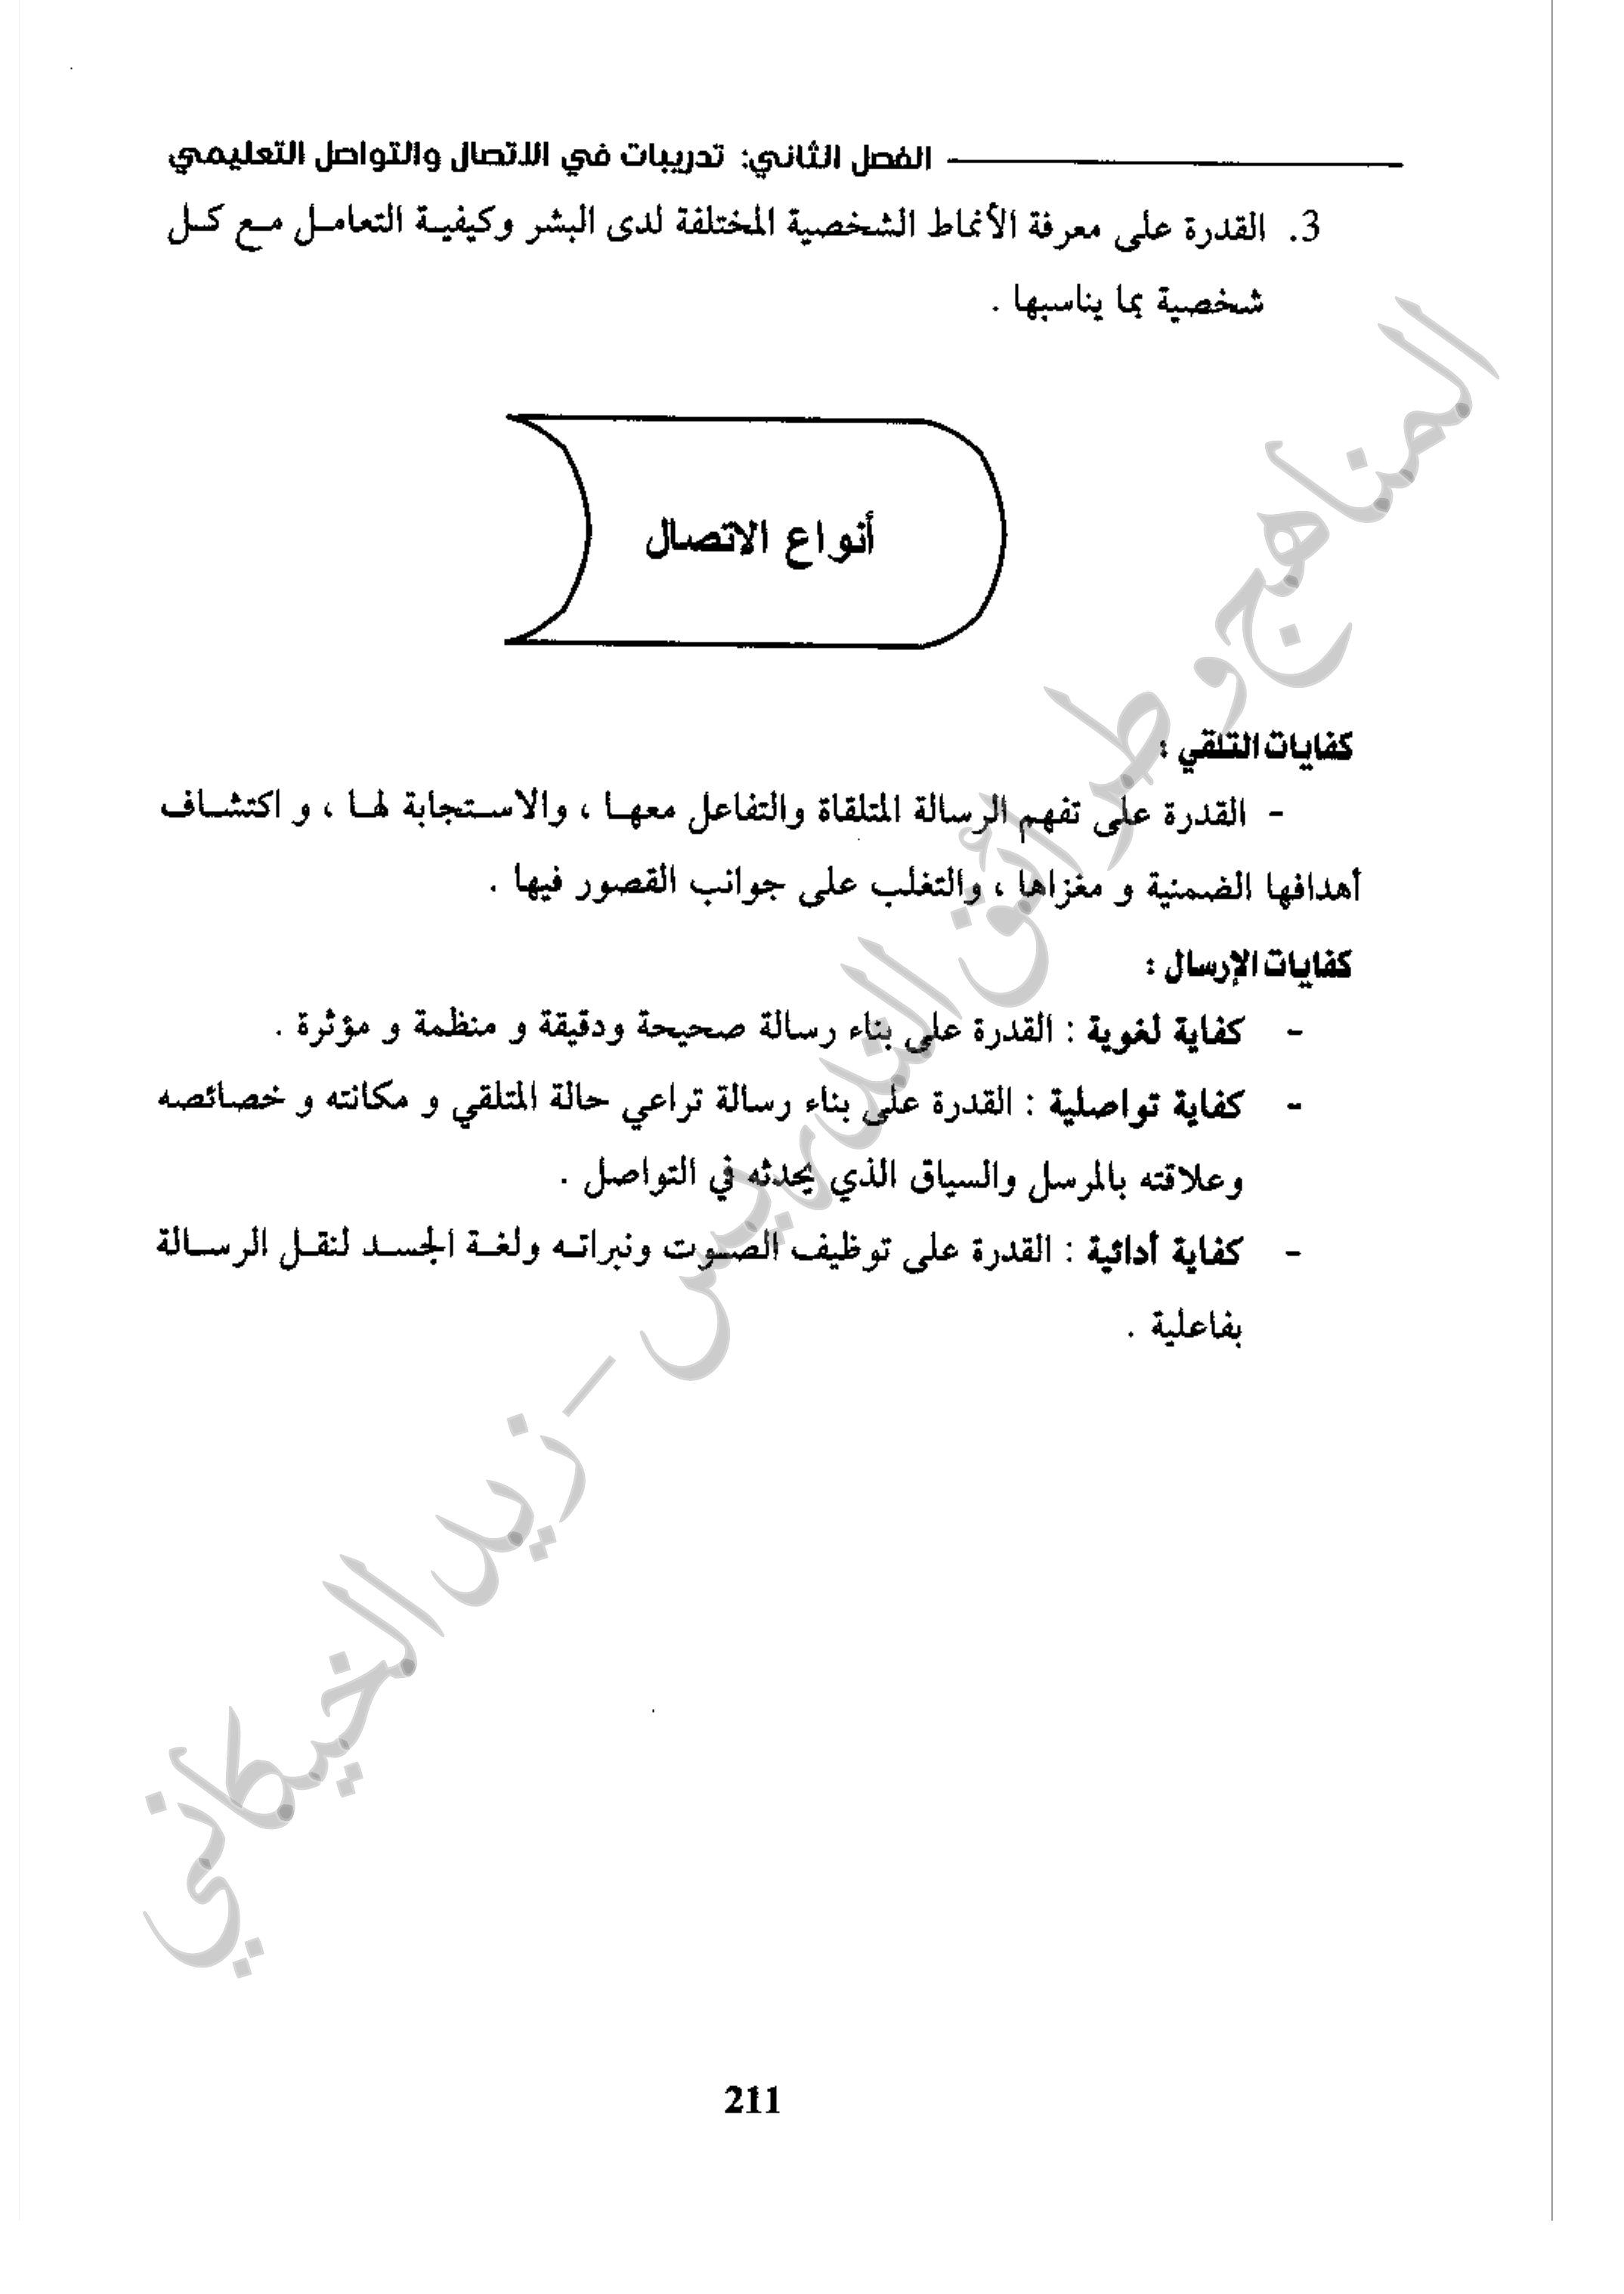 الفصل الثاني: تدريبات في الاتصال والتواصل التعليمي
3. القدرة على معرفة الأنماط الشخصية المختلفة لدى البشر وكيفية التعامل مع كل
شخصية بما يناسبها .
أنواع الاتصال
كفايات التلقي :
- القدرة على تفهم الرسالة المتلقاة والتفاعل معها ، والاستجابة لها ، و اكتشاف
أهدافها الضمنية و مغزاها ، والتغلب على جوانب القصور فيها .
كفايات الإرسال :
- كفاية لغوية : القدرة على بناء رسالة صحيحة ودقيقة و منظمة و مؤثرة .
- كفاية تواصلية : القدرة على بناء رسالة تراعي حالة المتلقي و مكانته و خصائصه
وعلاقته بالمرسل والسياق الذي يحدثه في التواصل .
- كفاية أدائية : القدرة على توظيف الصوت ونبراته ولغة الجسد لنقل الرسالة
بفاعلية .
المناهج وطرائق التدريس - زيد الخيكاني
211